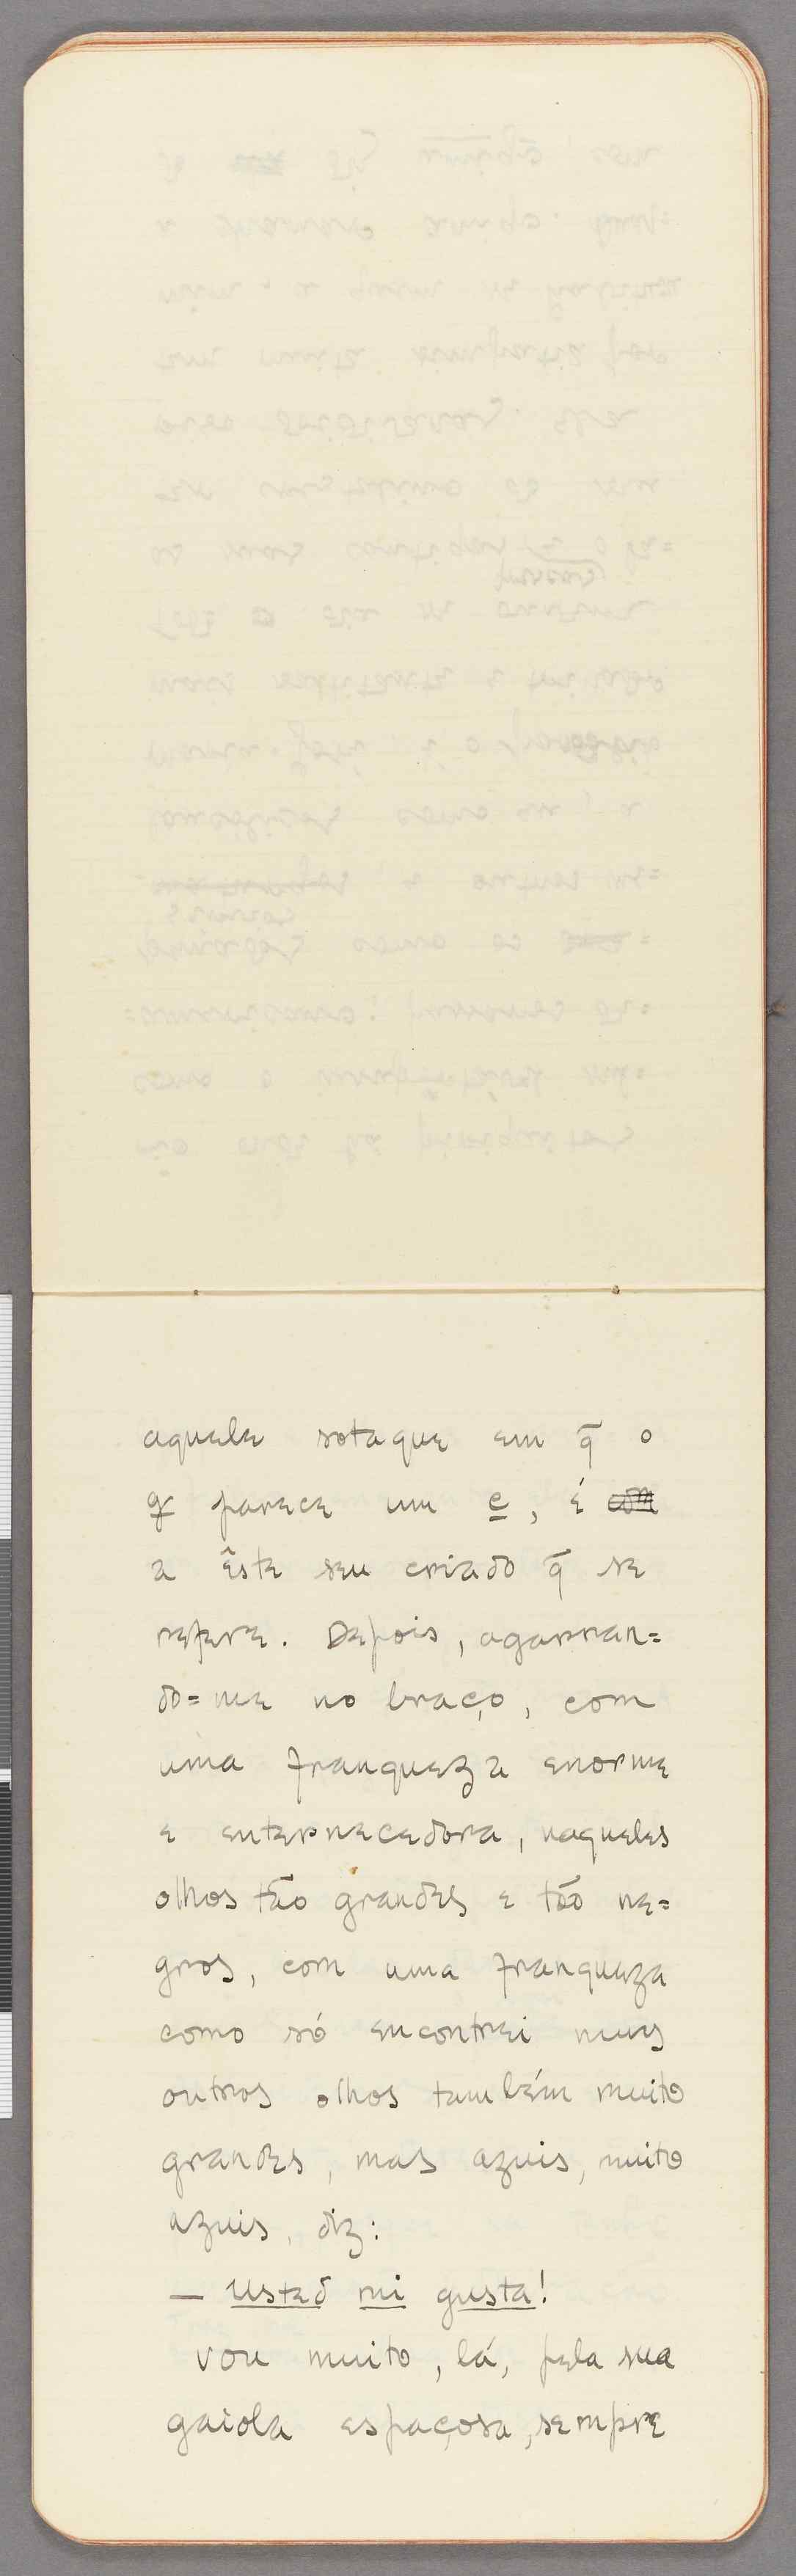 aquele sotaque em q̃ o
g parece um c, é
a êste seu criado q̃ se
refere. Depois, agarran=
do=me no braço, com
uma franqueza enorme
e enternecedora, naqueles
olhos tão grandes e tão ne=
gros, com uma franqueza
como só encontrei nuns
outros olhos também muito
grandes, mas azuis, muito
azuis, diz:
— Usted mi gusta!
Vou muito, lá, pela sua
gaiola espaçosa, sempre